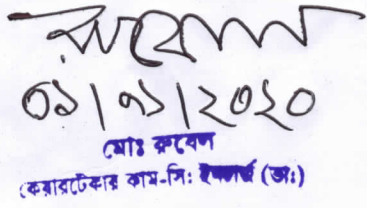 রুবেল
০১/০১/২০২০
মোঃ রুবেল
কেয়ারটেকার কাম-সি: (ভা:)